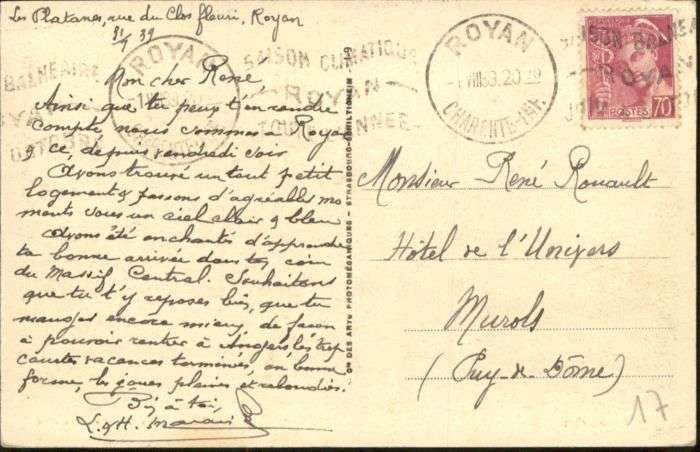 Les Platanes, rue du Clos fleuri, Royan
31/7 39
Mon cher René
Ainsi que tu peux t'en rendre
compte, nous sommes à Royan
& ce, depuis vendredi soir
Avons trouvé un tout petit
logement & passons d'agréables mo
ments sous un ciel clair & bleu
Avons été enchantés d'apprendre
ta bonne arrivée dans ton coin
du Massif Central. Souhaitons
que tu t'y reposes bien, que tu
manges encore mieux, de façon
à pouvoir rentrer à Angers, les trop
courtes vacances terminées, en bonne
forme, les joues pleines et rebondies.
Bis à toi,
L & H. Marais
ROYAN
CHARENTE-INF.
SAISON CLIMATIQUE
ROYAN
TOUTE L'ANNEE
BALNEAIRE
ROYAN
SAISON BALNEAI
ROYAN
POSTES 70
Cie DES ARTS PHOTOMÉCANIQUES - STRASBOURG-SCHILTIGHEIM
Monsieur René Rouault
Hôtel de l'Univers
Murols
(Puy-de-Dôme)
17